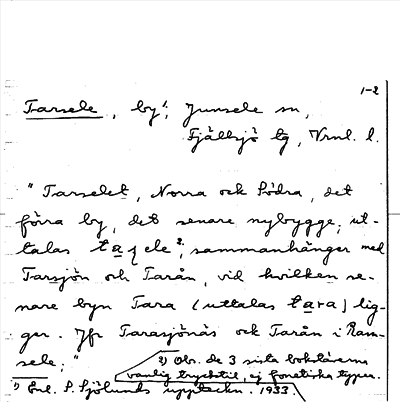 1-2
Tarsele, by¹, Junsele sn,
Fjällsjö tg, Vrml. l.
"Tarselet, Norra och Södra, det
förra by, det senare nybygge, ut-
talas taʃele², sammanhänger med
Tarsjön och Tarån, vid hvilken se-
nare byn Tara (uttalas tara) lig-
ger. Jfr Tarasjönäs och Tarån i Ram-
sele."
2) Obs. de 3 sista bokstäverna
vanlig tryckstil, ej fonetiska typer.
1) Enl. S. Sjölunds uppteckn. 1933.